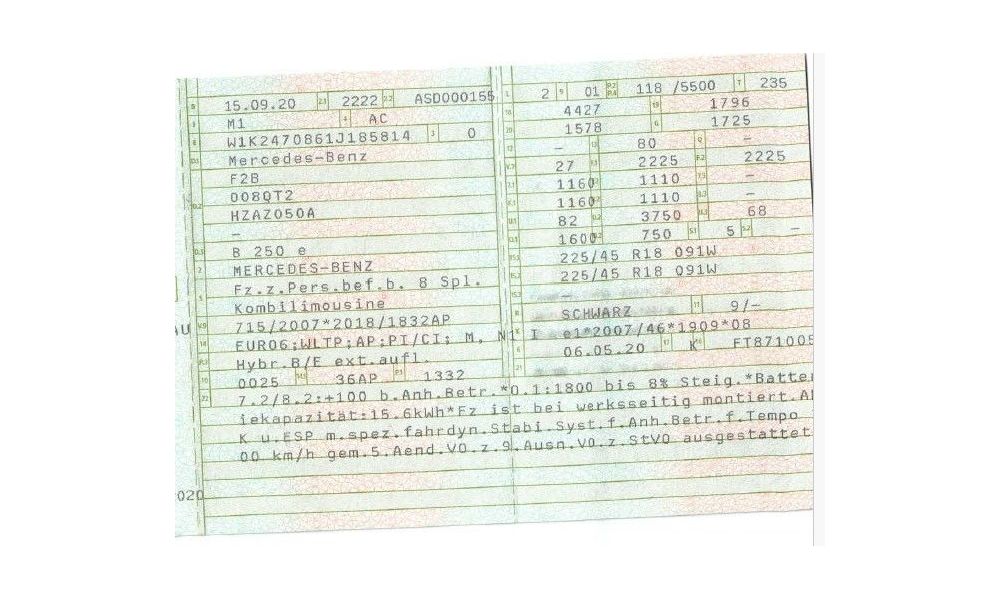 15.09.20 2222 ASD000155
M1 AC
W1K2470861J185814 0
Mercedes-Benz
F2B
008QT2
HZAZ050A
–
B 250 e
MERCEDES-BENZ
Fz.z.Pers.bef.b. 8 Spl.
Kombilimousine
715/2007*2018/1832AP
EURO6;WLTP;AP;PI/CI; M, N1 I
Hybr.B/E ext.aufl.
0025 36AP 1332
L 2 9 01 P.2 P.4 118 /5500 T 235
18 4427 19 1796
20 1578 G 1725
12 – 13 80 Q –
V.7 27 F.1 2225 F.2 2225
7.1 1160 1110 7.3 –
8.1 1160 1110 8.3 –
U.1 82 U.2 3750 U.3 68
O.1 1600 O.2 750 S.1 5 S.2 –
15.1 225/45 R18 091W
15.2 225/45 R18 091W
15.3 –
R SCHWARZ 11 9/–
K e1*2007/46*1909*08
6 06.05.20 17 K 16 FT871005
21
22 7.2/8.2:+100 b.Anh.Betr.*O.1:1800 bis 8% Steig.*Batter
iekapazität:15.6kWh*Fz ist bei werksseitig montiert.A
K u.ESP m.spez.fahrdyn.Stabi.Syst.f.Anh.Betr.f.Tempo
00 km/h gem.5.Aend.VO.z.9.Ausn.VO.z.StVO ausgestattet
AU
020